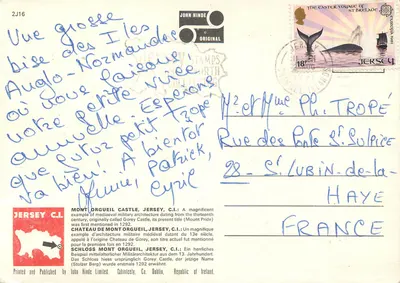 2J16
JOHN HINDE
ORIGINAL
THE EXETER VOYAGE OF ST. BRELADE
18p
JERSEY
Une grosse
bise des Iles
Anglo-Normandes
où nous faisons
notre petite virée
annuelle. Espérons
que futur petit Tropé
va bien. A bientôt
Patrick,
Cyril
Mr et Mme Ph. TROPÉ
Rue des Ponts St Sulpice
28 - St LUBIN-de-la-
HAYE
FRANCE
JERSEY C.I.
MONT ORGUEIL CASTLE, JERSEY, C.I.: A magnificent
example of medieval military architecture dating from the thirteenth
century, originally called Gorey Castle, its present title (Mount Pride)
was first mentioned in 1292.
CHATEAU DE MONT ORGUEIL, JERSEY, C.I.: Un magnifique
exemple d'architecture militaire médiéval datant du 13e siècle,
appelé à l'origine Chateau de Gorey, son titre actuel fut mentionné
pour la première fois en 1292.
SCHLOSS MONT ORGUEIL, JERSEY, C.I.: Ein herrliches
Beispiel mittelalterlicher Militärarchitektur aus dem 13. Jahrhundert.
Das Schloss hiess ursprünglich Gorey Castle, der jetzige Name
(Stolzer Berg) wurde erstmals 1292 erwähnt.
Printed and Published by John Hinde Limited, Cabinteely, Co. Dublin, Republic of Ireland.